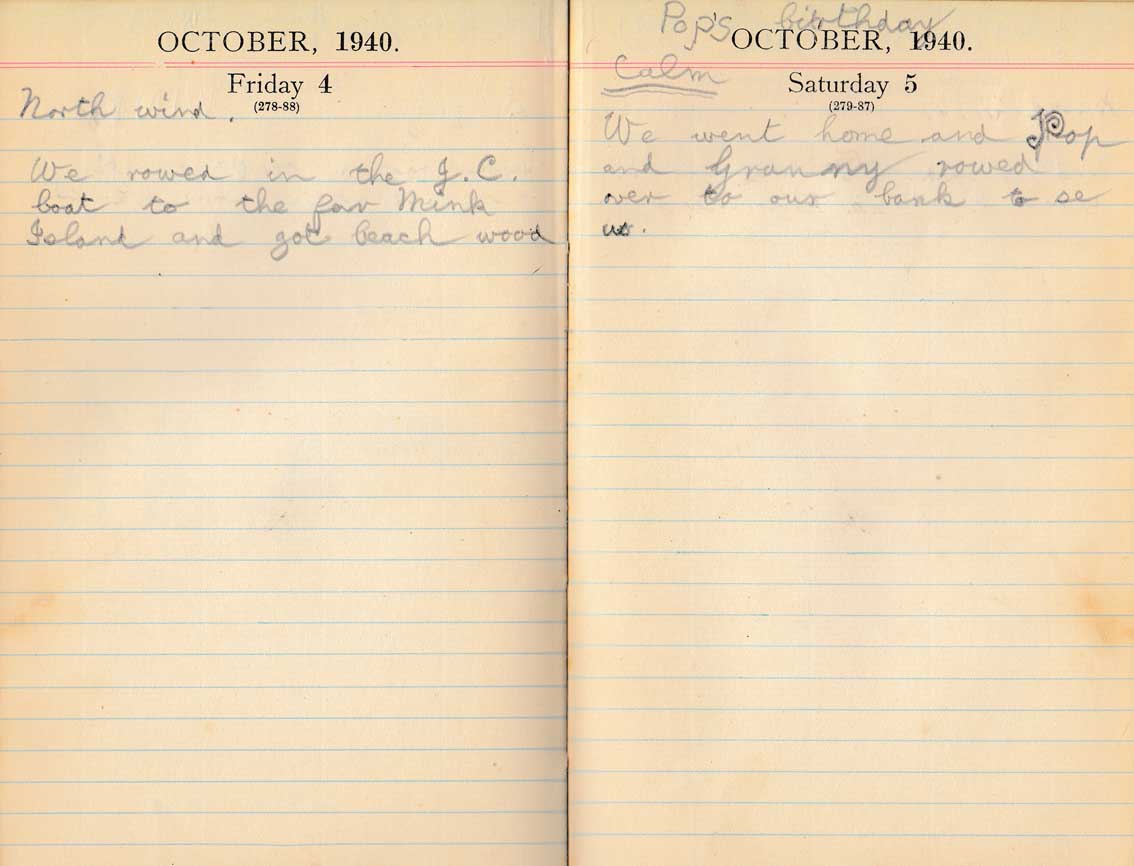 OCTOBER, 1940.
Friday 4
(278-88)
North wind.
We rowed in the J.C.
boat to the far Mink
Island and got beach wood
Pop's birthday
OCTOBER, 1940.
Calm
Saturday 5
(279-87)
We went home and Pop
and Granny rowed
over to our bank to se
us.